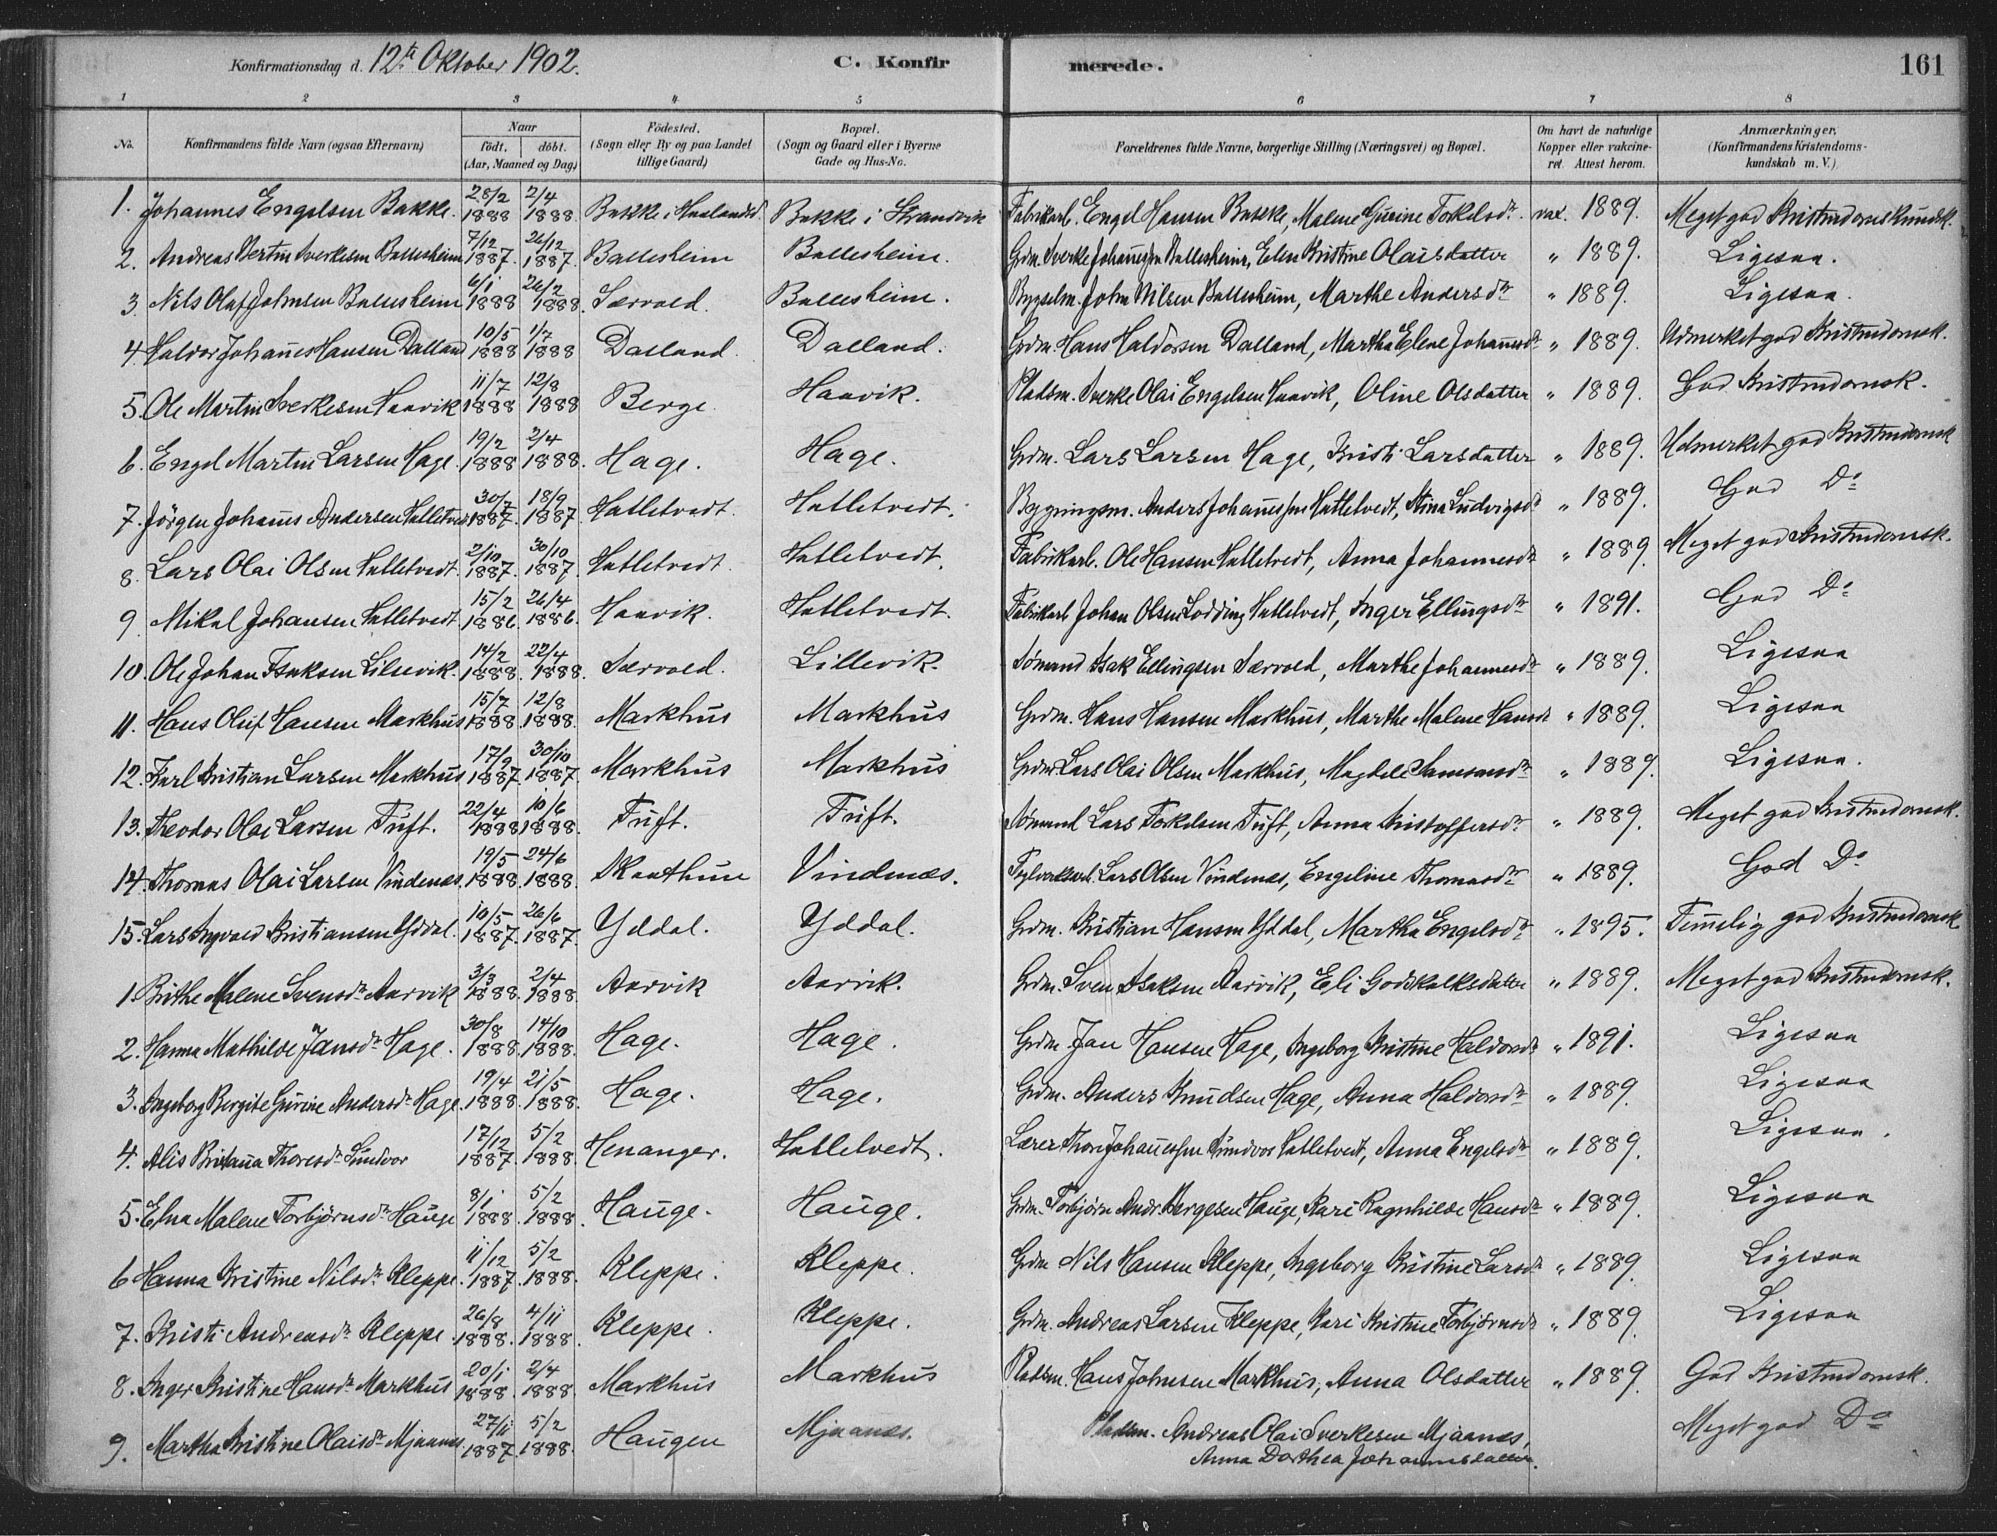 Konfirmationsdag d. 12te Oktober 1902. C. Konfirmerede. 161
1 2 3 4 5 6 7 8
No. Konfirmandens fulde Navn (ogsaa Efternavn) Naar født, døbt. (Aar, Maaned og Dag) Fødested. (Sogn eller By og paa Landet tillige Gaard) Bopæl. (Sogn og Gaard eller i Byerne Gade og Hus-No. Forældrenes fulde Navne, borgerlige Stilling (Næringsvei) og Bopæl. Om havt de naturlige Kopper eller vakcineret. Attest herom. Anmærkninger, (Konfirmandens Kristendomskundskab m. V.)
1. Johannes Engelsen Bakke. 28/2 1888 2/4 1888 Bakke i Haalandsd. Bakke i Strandvik Fabrikarb. Engel Hansen Bakke, Malene Gurine Torkelsdr. vax. 1889. Meget god Kristendomskundsk.
2. Andreas Bertin Sverkesen Ballesheim 7/12 1887. 26/12 1887. Ballesheim Ballesheim. Grdm. Sverke Johannessen Ballesheim, Elen Kristine Olaisdatter " 1889. Ligesaa.
3. Nils Olaf Johnsen Ballesheim 6/1 1888 26/2 1888. Særvold. Ballesheim. Bygselm. John Nilsen Ballesheim, Marthe Andersdr " 1889. Ligesaa.
4. Haldor Johannes Hansen Dalland 10/5 1888 1/7 1888 Dalland. Dalland. Grdm. Hans Haldorsen Dalland, Martha Elene Johannesdr " 1889. Udmerket god Kristendomsk.
5. Ole Martin Sverkesen Haavik 11/7 1888 12/8 1888 Berge. Haavik. Pladsm. Sverke Olai Engelsen Haavik, Oline Olsdatter " 1889. God Kristendomsk.
6. Engel Martin Larsen Hage. 19/2 1888 2/4 1888. Hage. Hage. Grdm. Lars Larsen Hage, Kristi Larsdatter " 1889. Udmerket god Kristendomsk
7. Jörgen Johannes Andersen Hatletvedt 30/7 1887. 18/9 1887 Hatletvedt. Hatletvedt. Bygningsm. Anders Johannessen Hatletvedt, Stina Ludvigsdr " 1889. God Do
8. Lars Olai Olsen Hatletvedt. 2/10 1887. 30/10 1887. Hatletvedt. Hatletvedt. Fabrikarb. Ole Hansen Hatletvedt, Anna Johannesdr " 1889. Meget god Kristendomsk.
9. Mikal Johansen Hatletvedt. 15/2 1886 26/4 1886. Haavik. Hatletvedt. Fabrikarb Johan Olsen Lodding Hatletvedt, Inger Ellingsdr " 1891. God Do
10. Ole Johan Isaksen Lillevik. 14/2 1888. 22/4 1888. Særvold. Lillevik. Sømand Isak Ellingsen Særvold, Marthe Johannesdr " 1889. Ligesaa
11. Hans Oluf Hansen Markhus 15/7 1888. 12/8 1888. Markhus Markhus Grdm. Hans Hansen Markhus, Marthe Malene Hansdr " 1889. Ligesaa
12. Karl Kristian Larsen Markhus 17/9 1887. 30/10 1887. Markhus Markhus Grdm Lars Olai Olsen Markhus, Magdele Samsonsdr " 1889. Ligesaa.
13. Theodor Olai Larsen Tuft. 22/4 1888 10/6 1888. Tuft. Tuft. Sømand Lars Torkelsen Tuft, Anna Kristoffersdr " 1889. Meget god Kristendomsk.
14. Thomas Olai Larsen Vindenæs. 19/5 1888. 24/6 1888. Skaathun Vindenæs. Lars Olsen Vindenæs, Engeline Thomasdr " 1889. God Do
15. Lars Ingvald Kristiansen Yddal. 10/5 1887. 26/6 1887. Yddal. Yddal. Grdm. Kristian Hansen Yddal, Martha Engelsdr " 1895. Temmelig god Kristendomsk
1. Brithe Malene Svensdr Aarvik 3/3 1888. 2/4 1888. Aarvik Aarvik. Grdm. Sven Isaksen Aarvik, Eli Godskalksdatter " 1889. Meget god Kristendomsk.
2. Hanna Mathilde Jansdr Hage. 30/8 1888. 14/10 1888. Hage. Hage. Grdm. Jan Hansen Hage, Ingeborg Kristine Haldorsdr " 1891. Ligesaa
3. Ingeborg Bergite Gurine Andersdr Hage. 19/4 1888. 21/5 1888. Hage. Hage. Grdm. Anders Knudsen Hage, Anna Haldorsdr " 1889. Ligesaa
4. Alis Kristana Thoresdr Sundvor 17/12 1887. 5/2 1888. Henanger. Hatletvedt. Lærer Thore Johannessen Sundvor Hatletvedt, Anna Engelsdr " 1889. Ligesaa.
5. Elna Malene Torbjørnsdr Hauge 8/1 1888. 5/2 1888. Hauge. Hauge. Grdm. Torbjørn Andr. Børgesen Hauge, Kari Ragnhilde Hansdr " 1889. Ligesaa
6 Hanna Kristine Nilsdr Kleppe. 11/12 1887. 5/2 1888. Kleppe. Kleppe. Grdm Nils Hansen Kleppe, Ingeborg Kristine Larsdr " 1889. Ligesaa
7. Kristi Andreasdr Kleppe 26/8 1888. 4/11 1888. Kleppe. Kleppe. Grdm. Andreas Larsen Kleppe, Kari Kristine Torbjørnsdr " 1889. Ligesaa
8. Inger Kristine Hansdr Markhus 20/1 1888. 2/4 1888. Markhus Markhus Pladsm. Hans Johnsen Markhus, Anna Olsdatter " 1889. God Kristendomsk.
9. Martha Kristine Olaisdr Mjaanes. 27/11 1887. 5/2 1888. Haugen Mjaanes. Pladsm. Andreas Olai Sverkesen Mjaanes, Meget god Do
Anna Dorthea Johannesdatter.